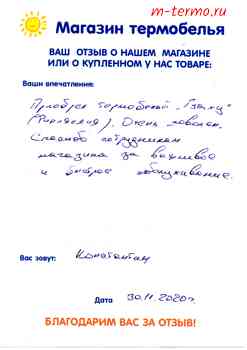 m-termo.ru
Магазин термобелья
ВАШ ОТЗЫВ О НАШЕМ МАГАЗИНЕ
ИЛИ О КУПЛЕННОМ У НАС ТОВАРЕ:
Ваши впечатления:
Приобрел термобельё
(Финляндия). Очень доволен.
Спасибо сотрудникам
магазина за вежливое
и быстрое обслуживание.
Вас зовут: Константин
Дата 30.11.2020г.
БЛАГОДАРИМ ВАС ЗА ОТЗЫВ!